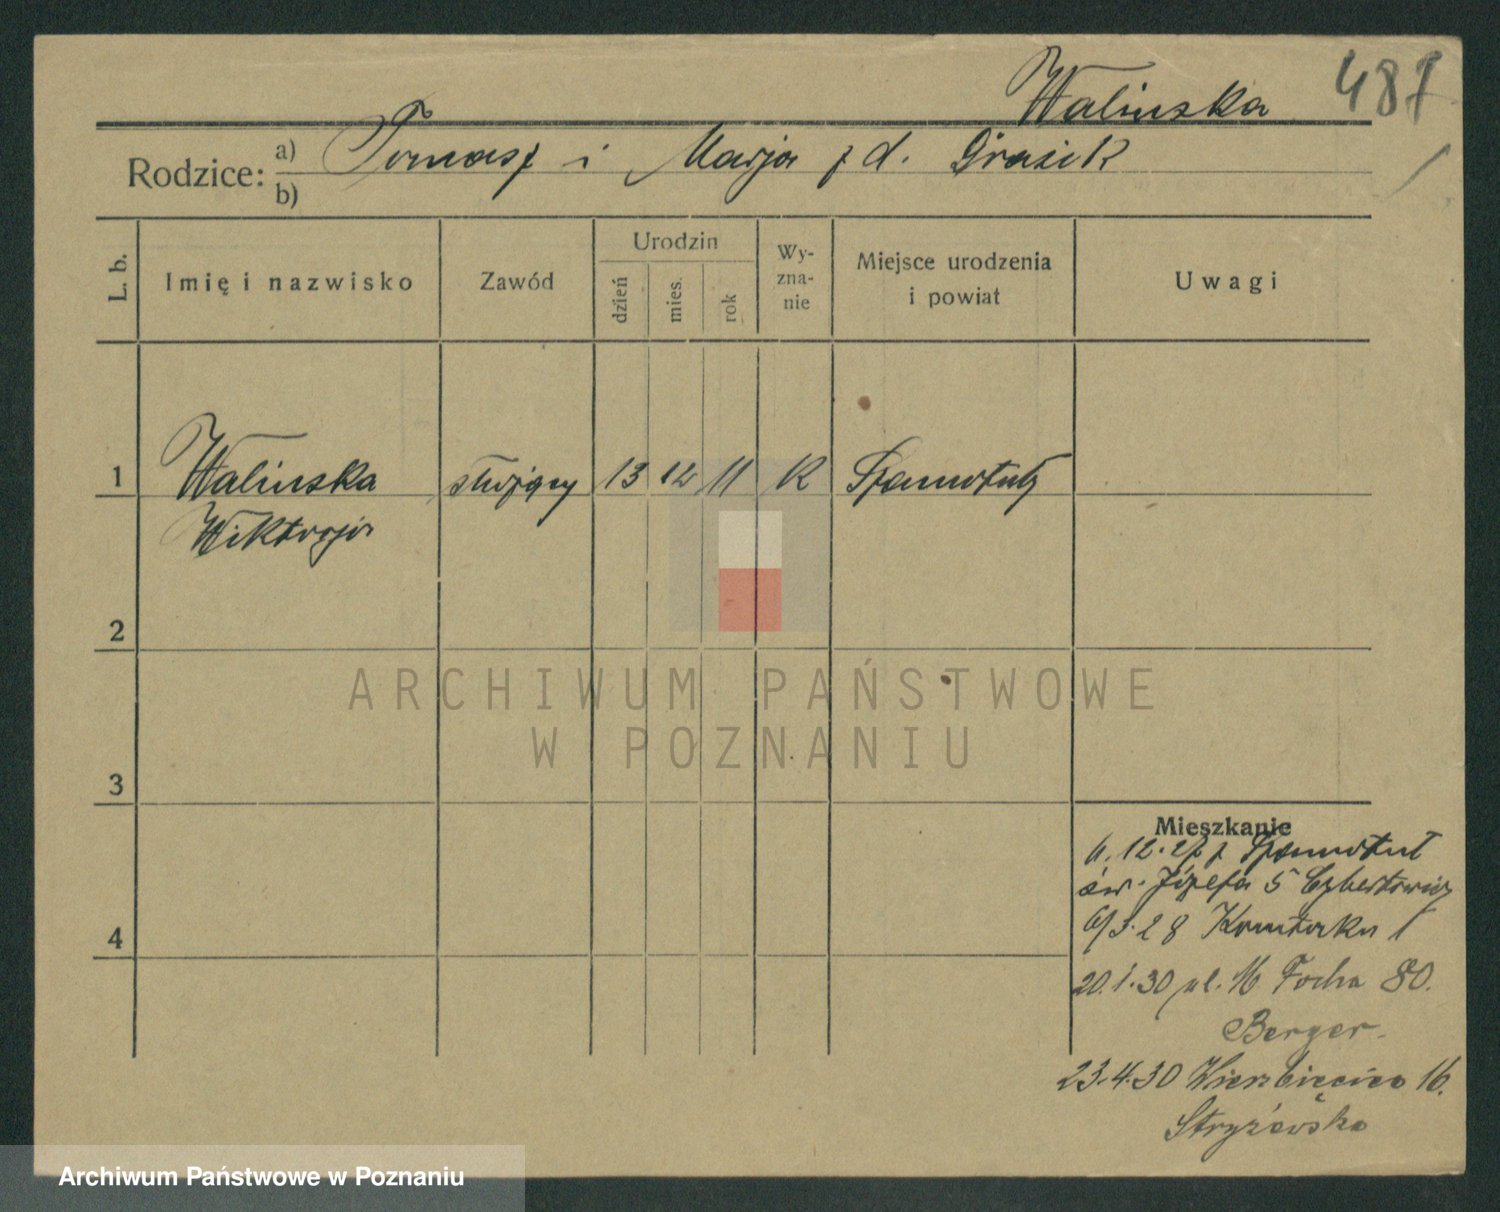 Walinska 487
Rodzice: a) Tomasz i Marja z d. Grażek
b)
L. b.
Imię i nazwisko
Zawód
Urodzin
dzień
mies.
rok
Wy-
zna-
nie
Miejsce urodzenia
i powiat
Uwagi
1 Walinska 13 12 11 K Szamotuły
Wiktorja
2
3
4
Mieszkanie
6.12.27 z Szamotuł
św. Józefa 5
3.28 Kantaka 1
20.1.30 ul. M Focha 80.
Berger.
23.4.30 Wierzbięcice 16.
Stryżewska
ARCHIWUM PAŃSTWOWE
W POZNANIU
Archiwum Państwowe w Poznaniu